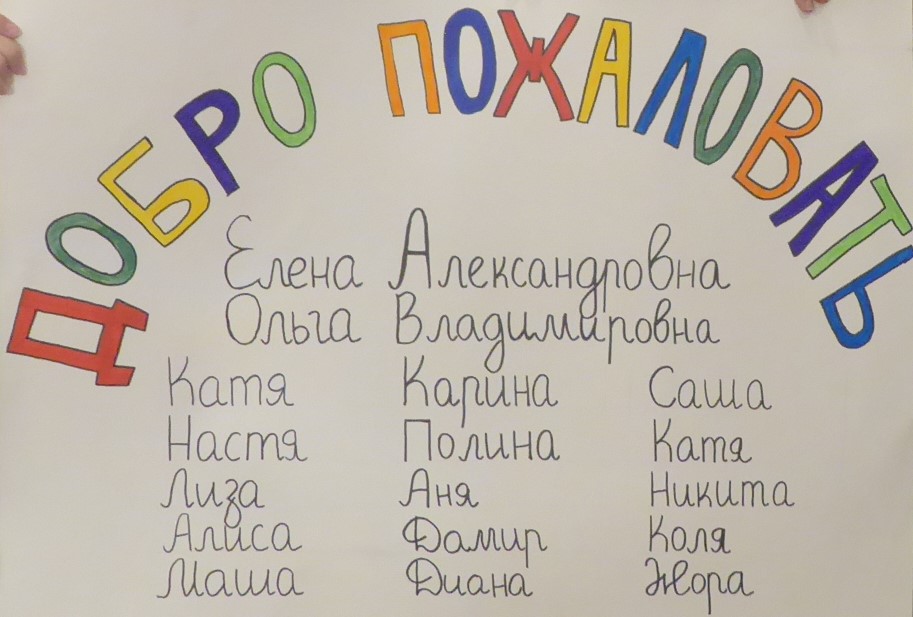 ДОБРО ПОЖАЛОВАТЬ
Елена Александровна
Ольга Владимировна
Катя Карина Саша
Настя Полина Катя
Лиза Аня Никита
Алиса Дамир Коля
Маша Диана Жора